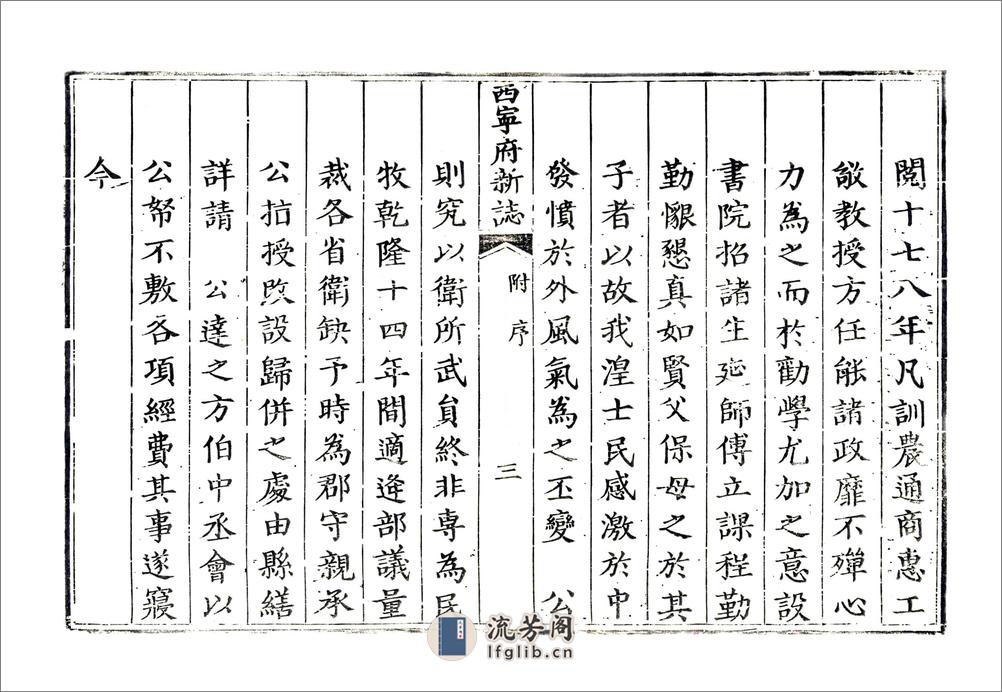 閱十七八年凡訓農通商惠工
敬教授方任能諸政靡不殫心
力為之而於勸學尤加之意設
書院招諸生延師傅立課程勤
勤懇懇真如賢父保母之於其
子者以故我湟士民感激於中
發憤於外風氣為之丕變 公
西寧府新誌 附序 三
則究以衛所武員終非專為民
牧乾隆十四年間適逄部議量
裁各省衛缺予時為郡守親承
公指授改設歸併之處由縣繕
詳請 公達之方伯中丞會以
公帑不敷各項經費其事遂寢
今
流芳阁
lfglib.cn